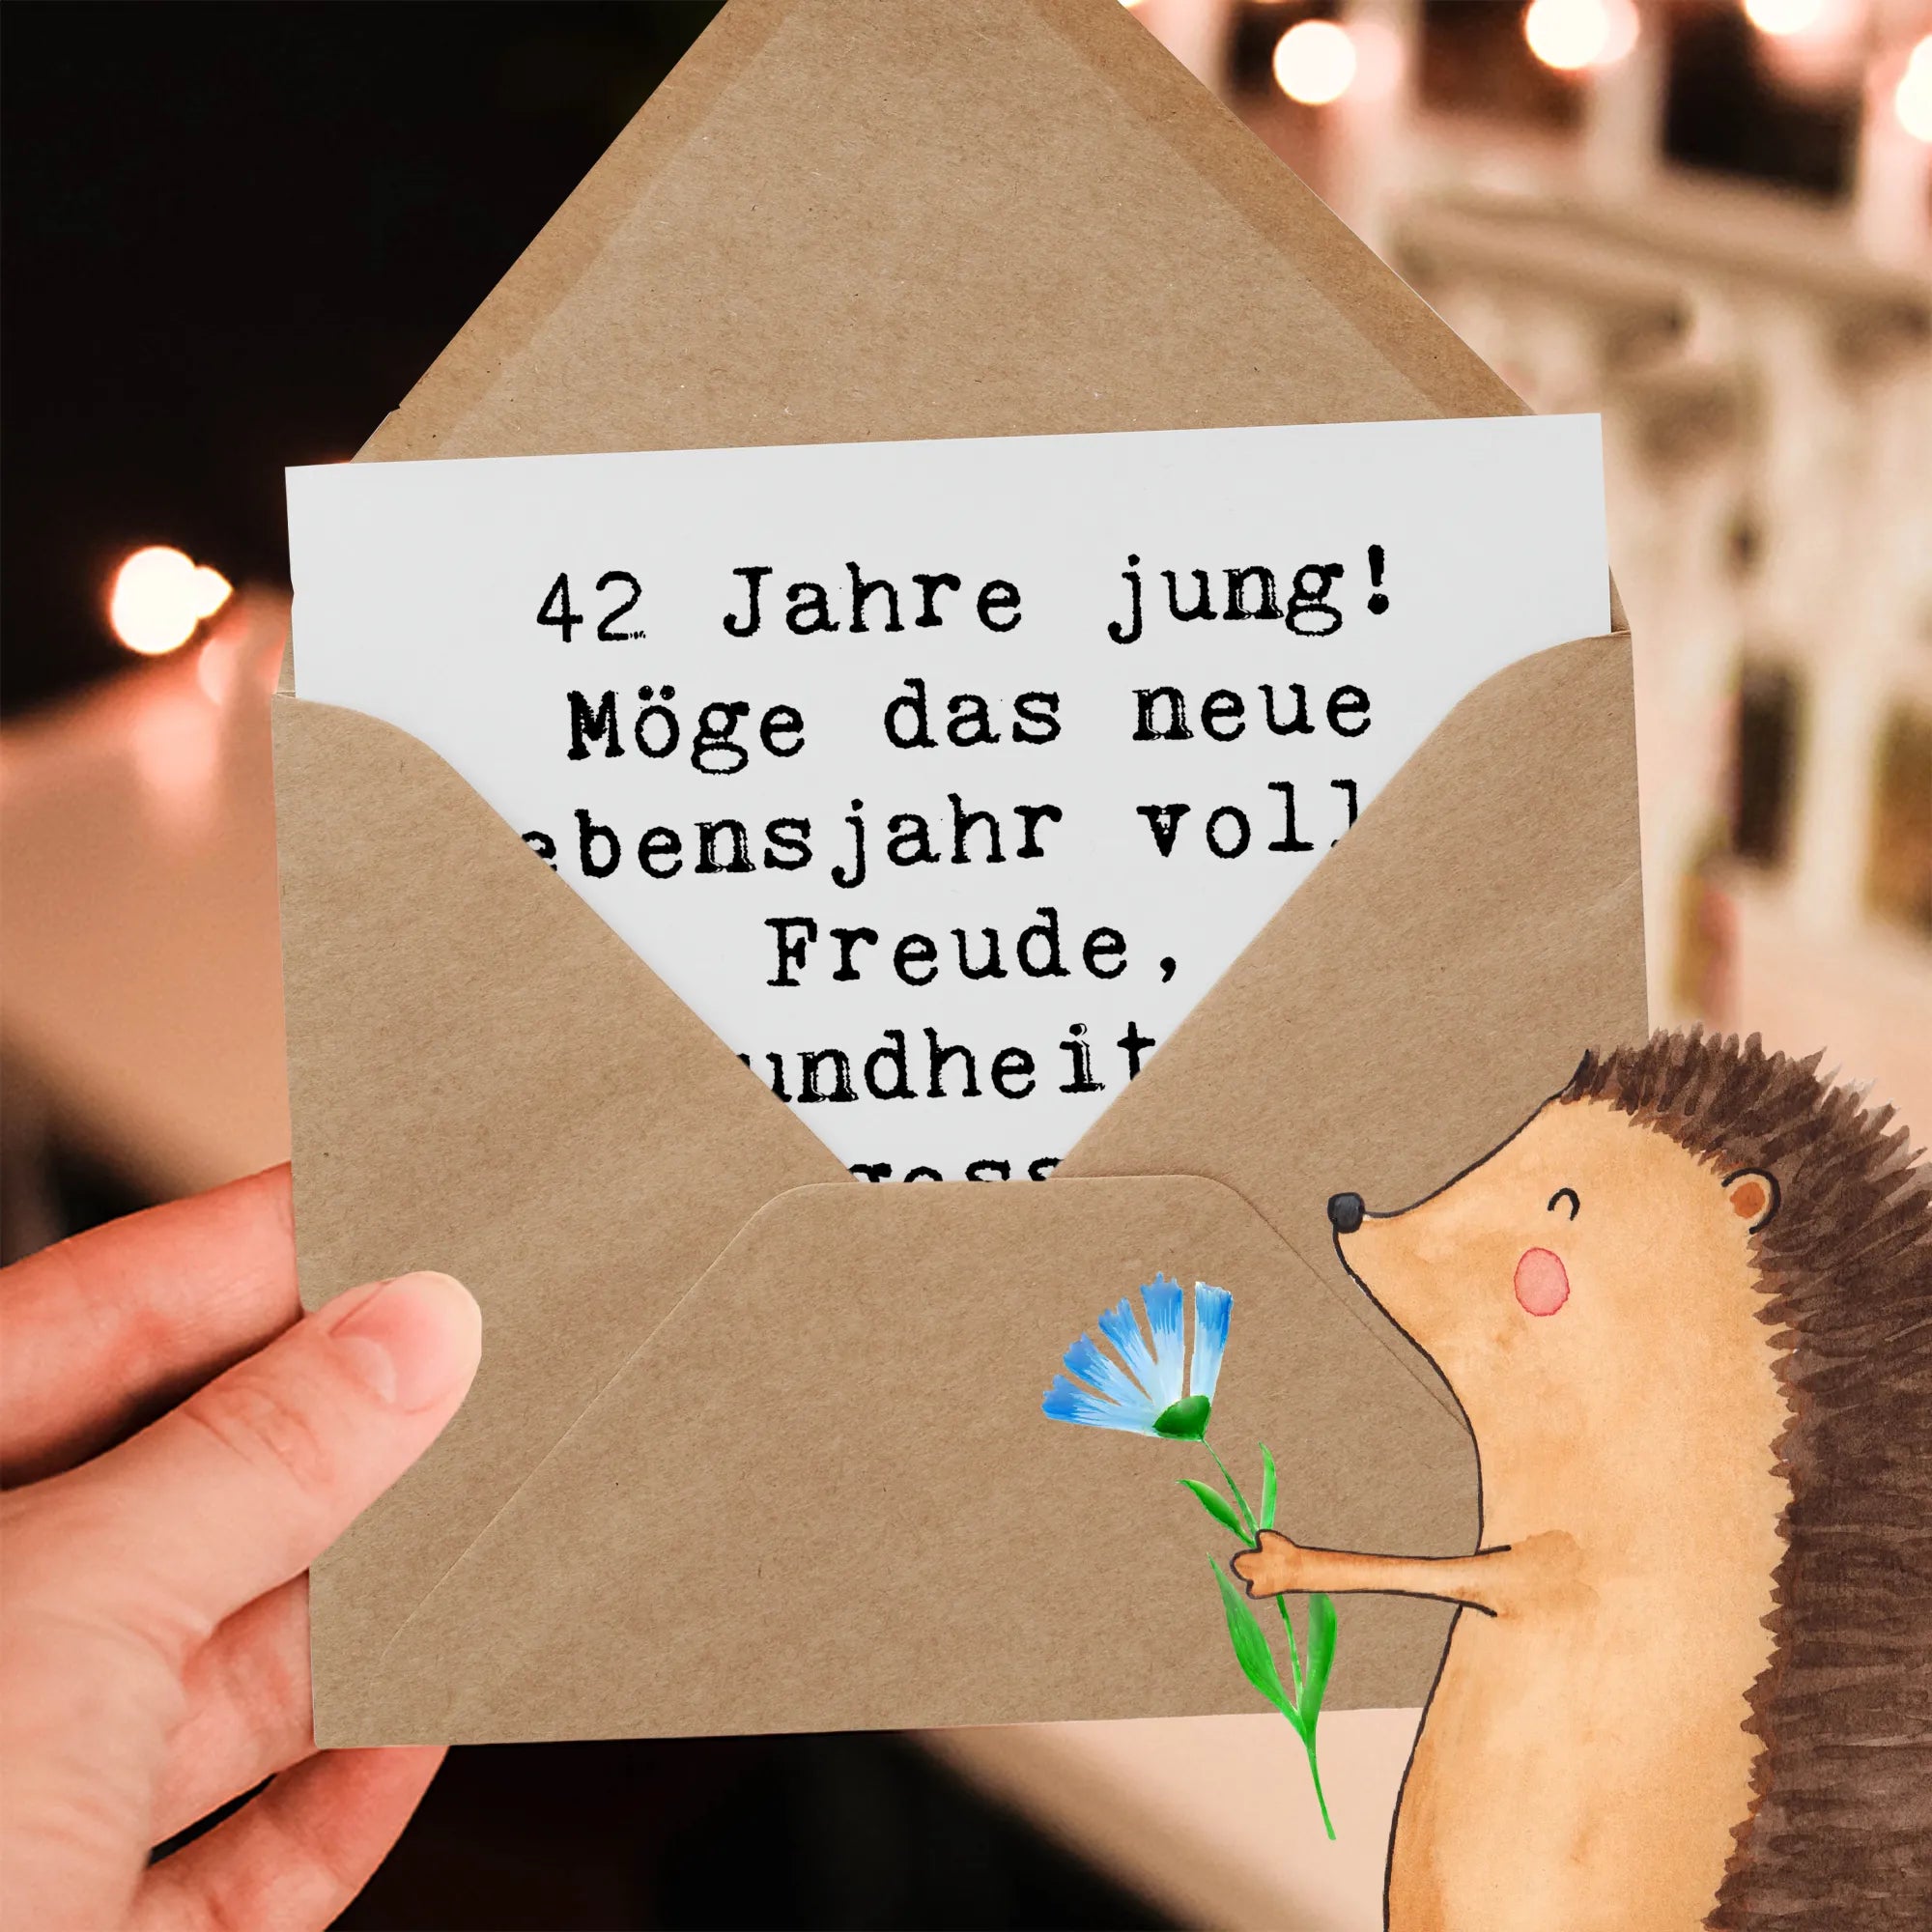 42 Jahre jung!
Möge das neue
ebensjahr voll
Freude,
undheit